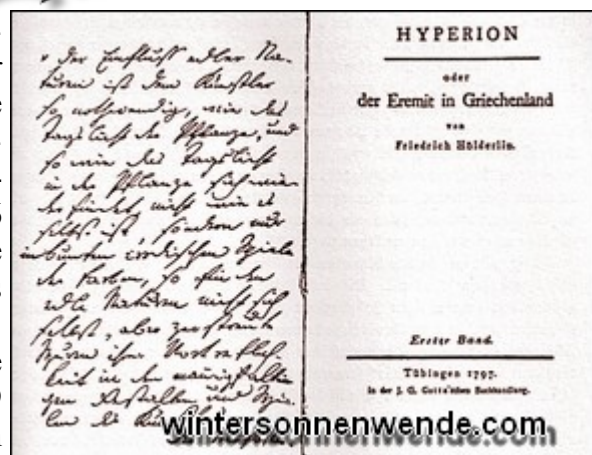 „ Der Einfluß edler Na-
turen ist dem Künstler
so nothwendig, wie das
Tagslicht der Pflanze, und
so wie das Tagslicht
in der Pflanze sich wie-
der findet, nicht wie es
selbst ist, sondern nur
im bunten irrdischen Spiele
der Farben, so finden
edle Naturen nicht sich
selbst, aber zerstreute
Spuren ihrer Vortreflich-
keit in den mannigfalti-
gen Gestalten und Spie-
len des Künstlers
HYPERION
oder
der Eremit in Griechenland
von
Friedrich Hölderlin.
Erster Band.
Tübingen 1797.
in der J. G. Cotta'schen Buchhandlung.
wintersonnenwende.com